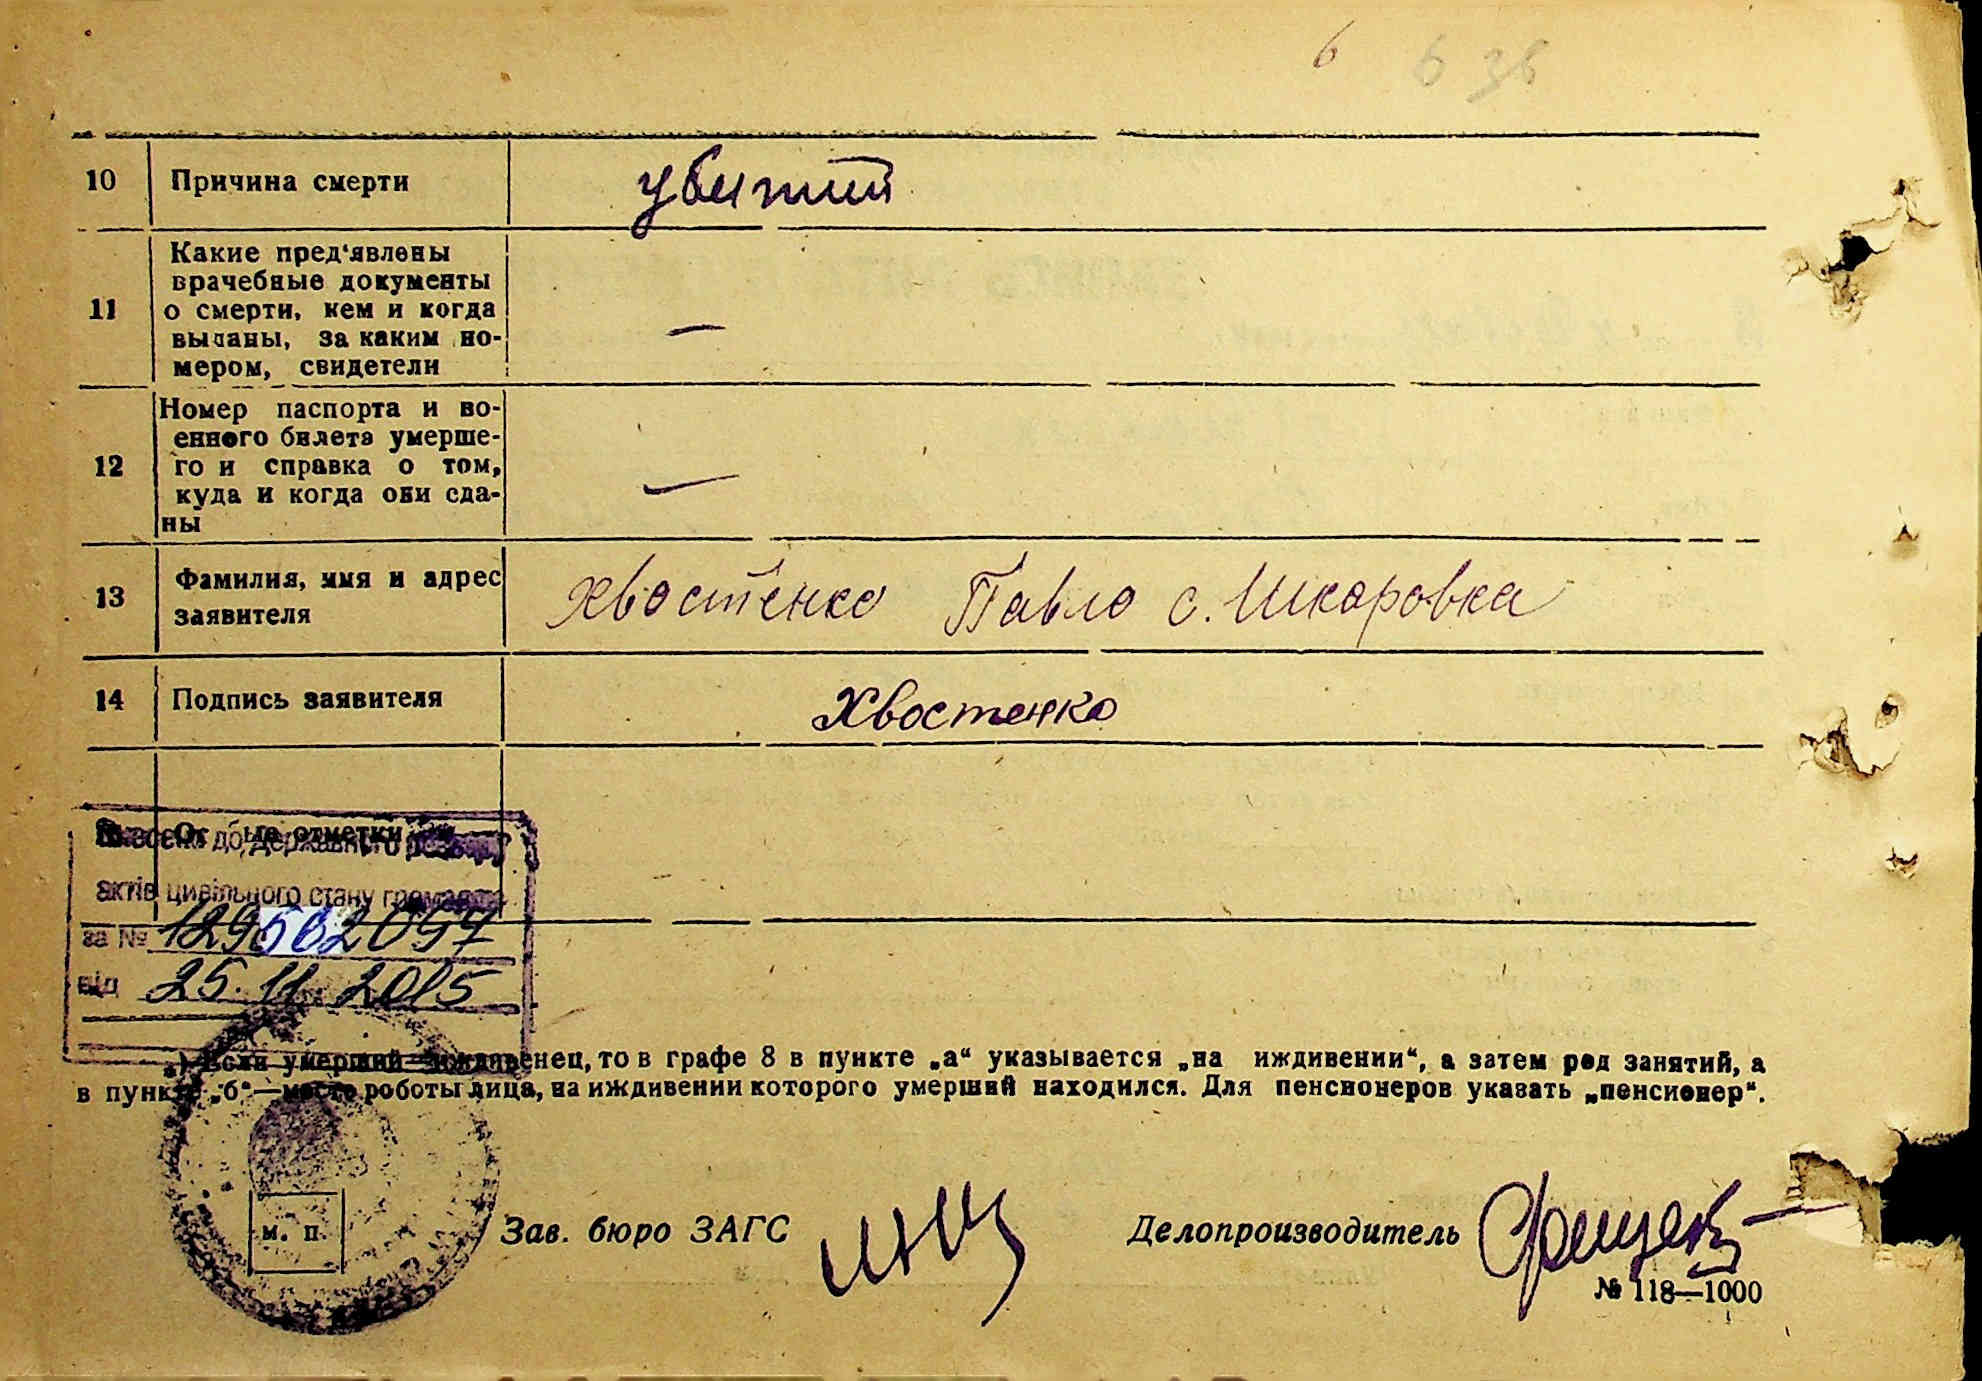 6 6 36
10 Причина смерти убитий
11 Какие пред‘явлены
врачебные документы
о смерти, кем и когда
выданы, за каким но-
мером, свидетели
—
12 Номер паспорта и во-
енного билета умерше-
го и справка о том,
куда и когда они сда-
ны
—
13 Фамилия, имя и адрес
заявителя
Хвостенко Павло с. Шкаровка
14 Подпись заявителя Хвостенко
отметки
до державного
актів цивільного стану громадян
за № 129562097
від 25.11.2015
Если умерший иждивенец, то в графе 8 в пункте „а“ указывается „на иждивении“, а затем род занятий, а
в пункте „б“—место роботы лица, на иждивении которого умерший находился. Для пенсионеров указать „пенсионер“.
м. п.
Зав. бюро ЗАГС Делопроизводитель
№ 118—1000